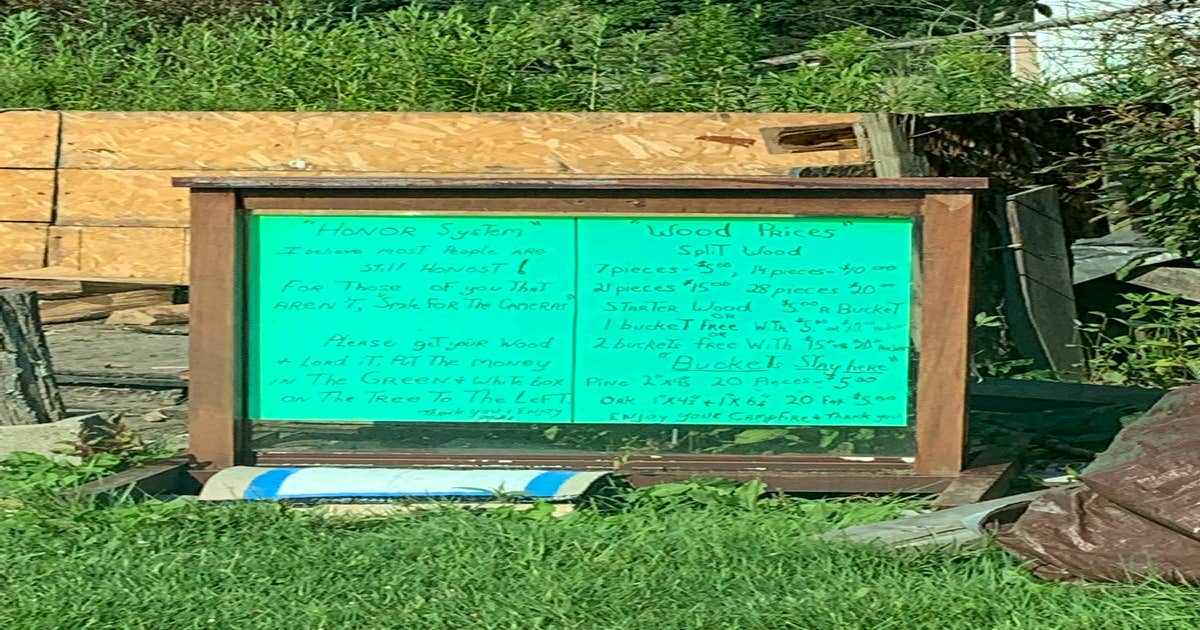 "HONOR SYSTEM"
I believe most People are
Still HONEST !
FOR Those of you That
AREN'T, "Smile FOR The CAMERAS"
Please get your Wood
+ Load it. Put The money
IN The GREEN + White box
ON The Tree To The Left.
Thank you + Enjoy
"Wood Prices"
Split Wood
7 pieces - $5.00, 14 pieces - $10.00
21 pieces $15.00 28 pieces $20.00
STARTER Wood $5.00 A Bucket
OR
1 bucket free with $5.00 or $10.00
2 buckets free with $15 or $20
"Buckets Stay here"
Pine 2"x4's 20 Pieces - $5.00
Oak 1"x4's + 1"x6's 20 For $5.00
ENJOY your Campfire + Thank you!